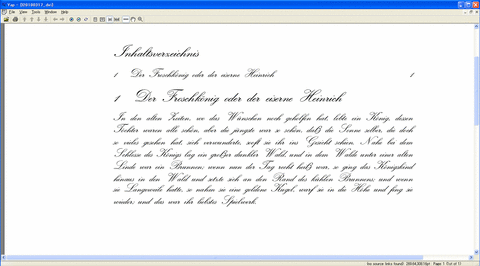 Yap - [20100317_.dvi]
File View Tools Window Help
Inhaltsverzeichnis
1 Der Froschkönig oder der eiserne Heinrich 1
1 Der Froschkönig oder der eiserne Heinrich
In den alten Zeiten, wo das Wünschen noch geholfen hat, lebte ein König, dessen
Töchter waren alle schön, aber die jüngste war so schön, daß die Sonne selber, die doch
so vieles gesehen hat, sich verwunderte, sooft sie ihr ins Gesicht schien. Nahe bei dem
Schlosse des Königs lag ein großer dunkler Wald, und in dem Walde unter einer alten
Linde war ein Brunnen; wenn nun der Tag recht heiß war, so ging das Königskind
hinaus in den Wald und setzte sich an den Rand des kühlen Brunnens; und wenn
sie Langeweile hatte, so nahm sie eine goldene Kugel, warf sie in die Höhe und fing sie
wieder; und das war ihr liebstes Spielwerk.
No source links found! Page: 1 (1st of 1)